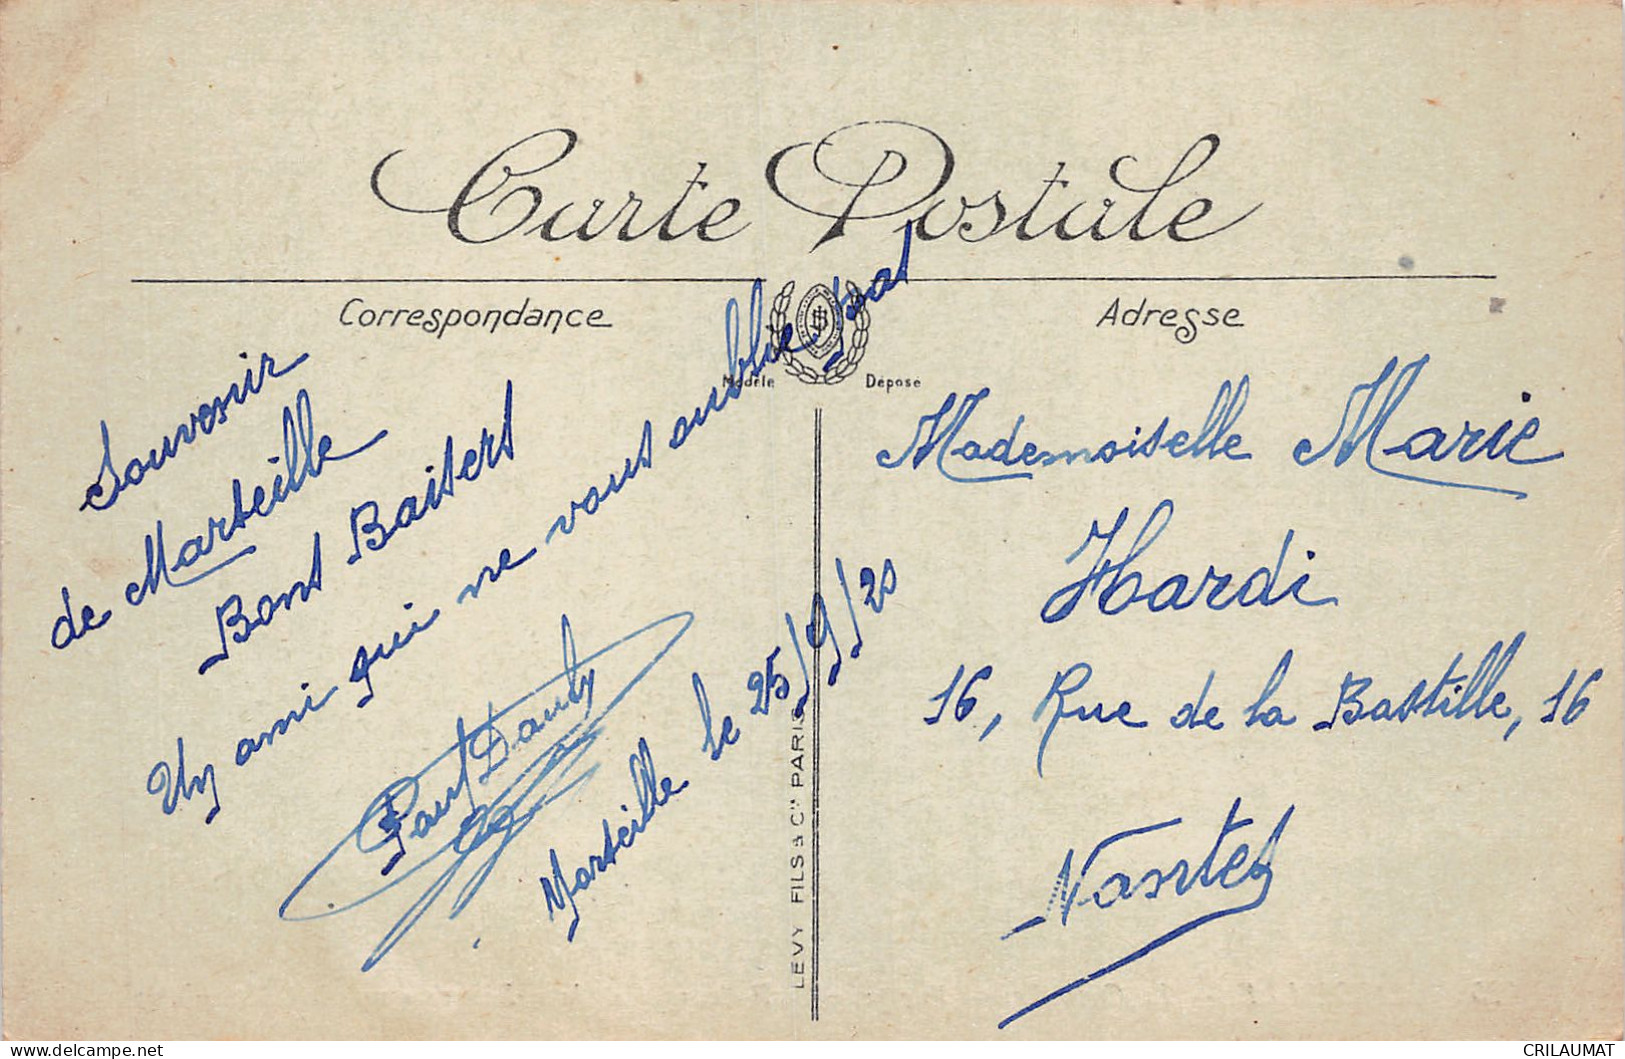 Carte Postale
Correspondance
Adresse
Modèle Déposé
Souvenir
de Marseille
Bons Baisers
Un ami qui ne vous oublie pas
Marseille le 25/9/20
LEVY FILS & Cie PARIS
Mademoiselle Marie
Hardi
16, Rue de la Bastille, 16
Nantes
www.delcampe.net
CRILAUMAT